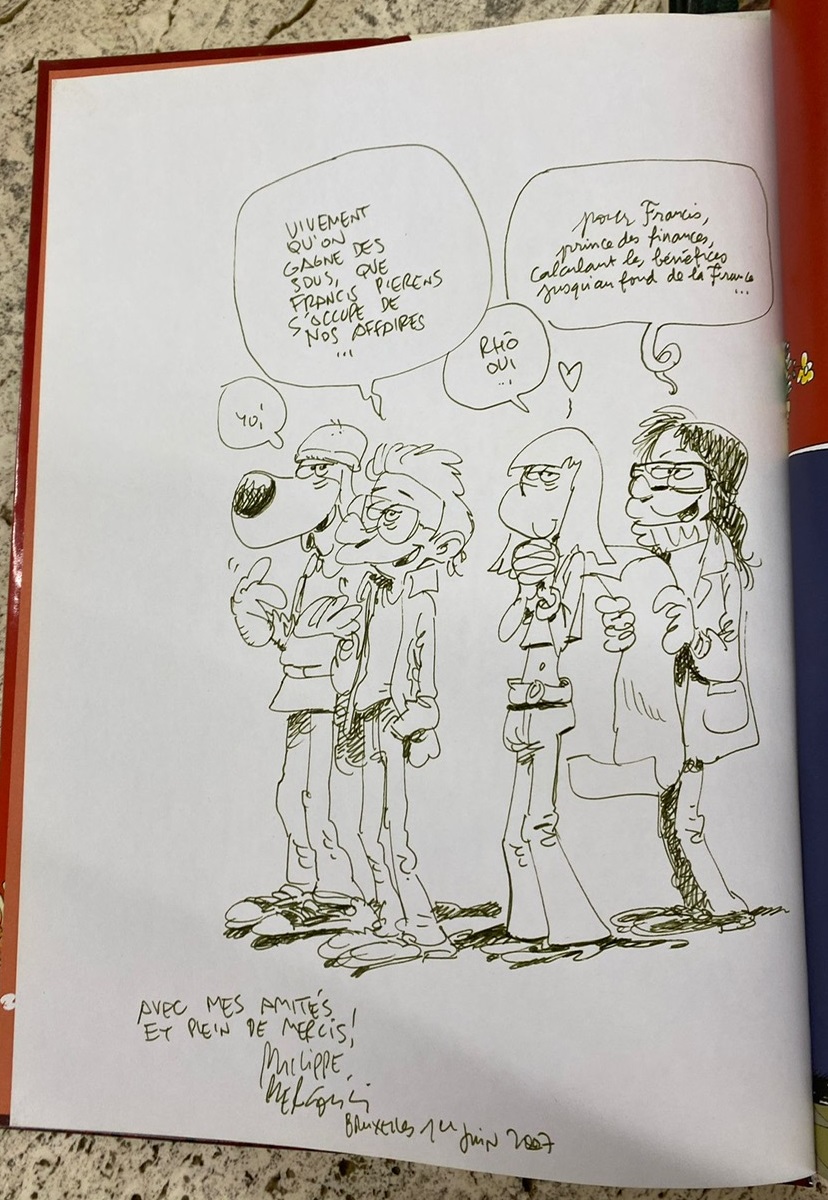 VIVEMENT
QU'ON
GAGNE DES
SOUS, QUE
FRANCIS PIERENS
S'OCCUPE DE
NOS AFFAIRES
...
pour Francis,
prince des finances,
calculant les bénéfices
jusqu'au fond de la France
...
RHÔ
OUI
...
YOÏ
AVEC MES AMITIÉS
ET PLEIN DE MERCIS!
PHILIPPE
BERCOVICI
BRUXELLES 1er JUIN 2007